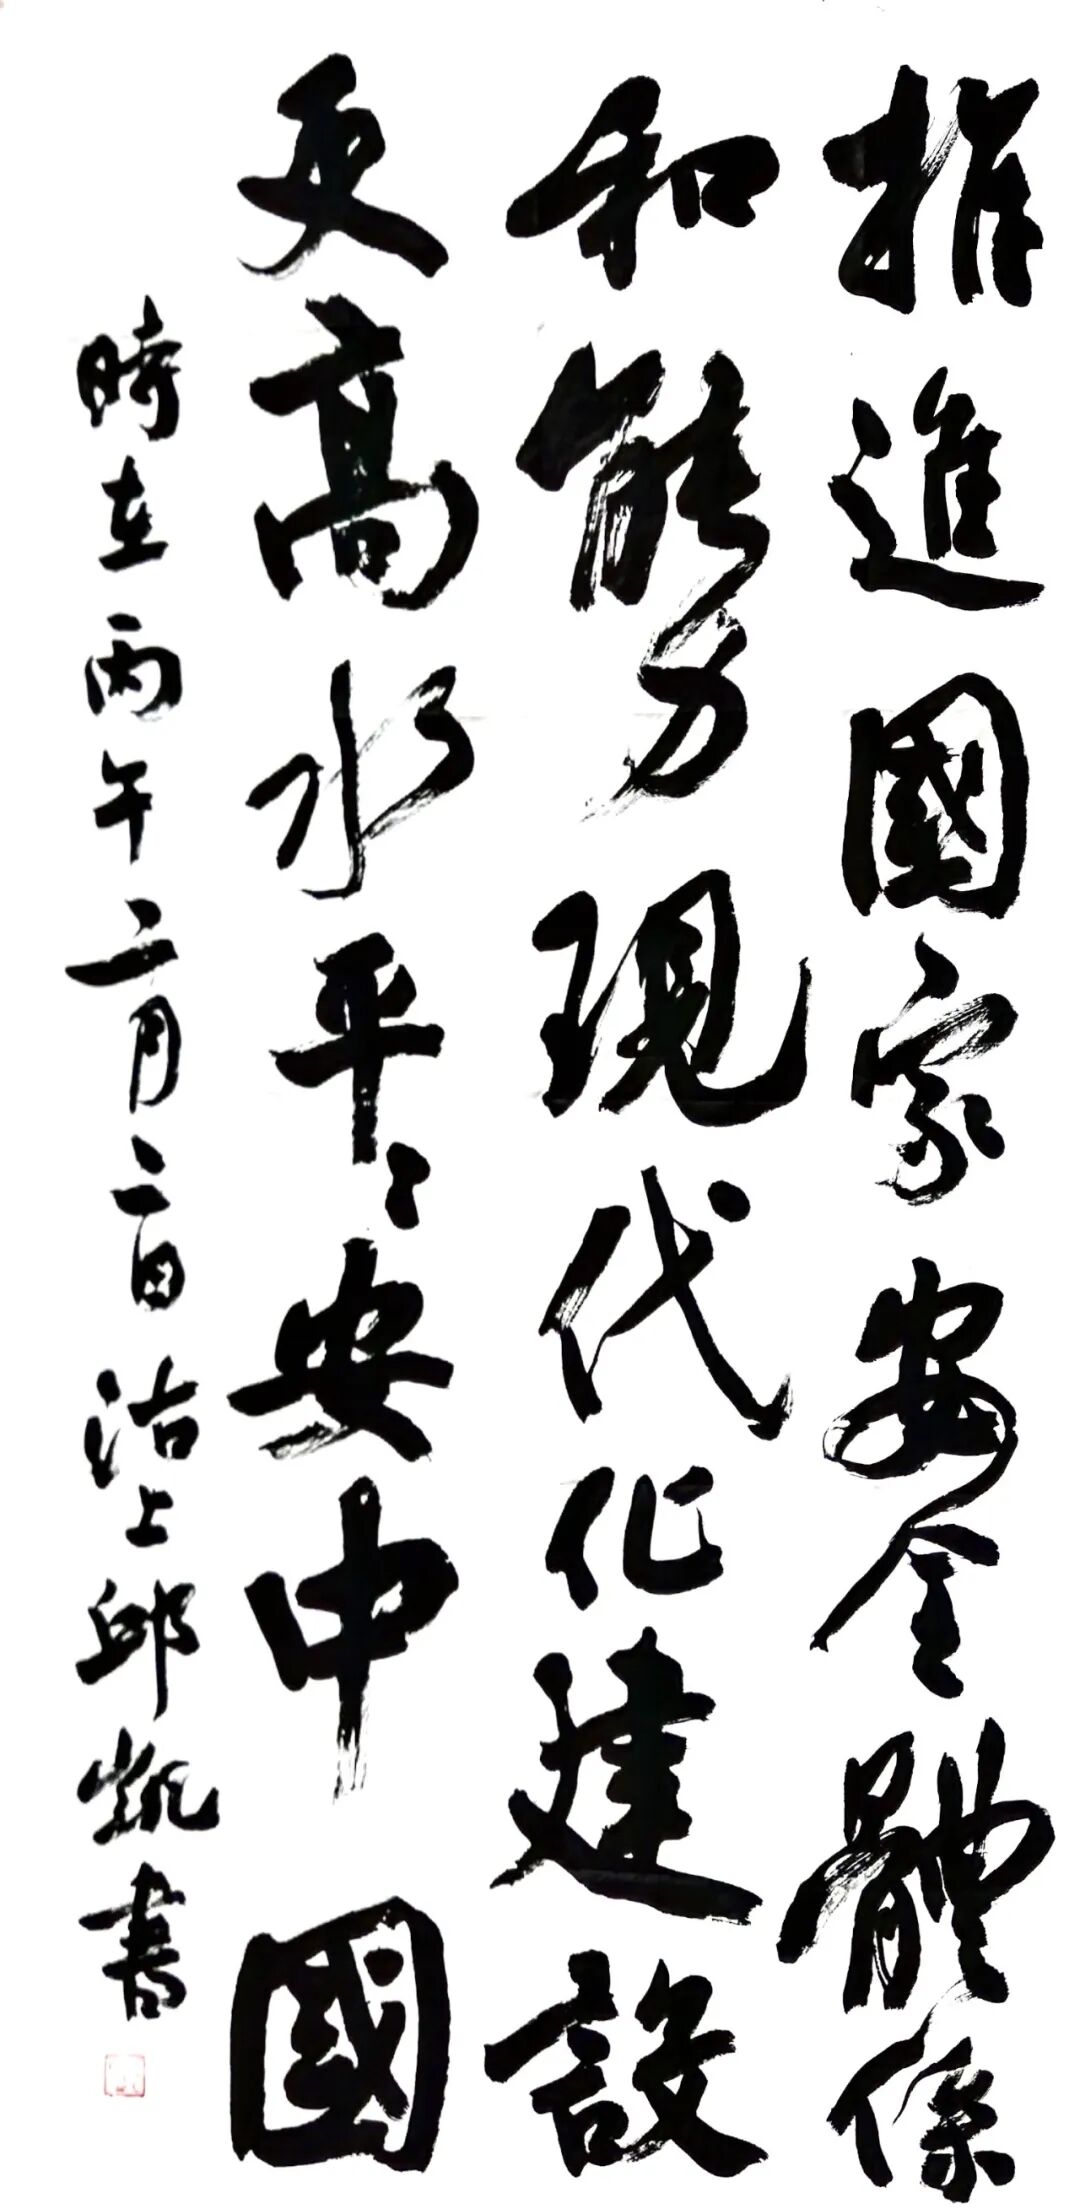 推進國家安全體係
和能力現代化建設
更高水平〻安中國
時在丙午二月二日沽上邱凱書